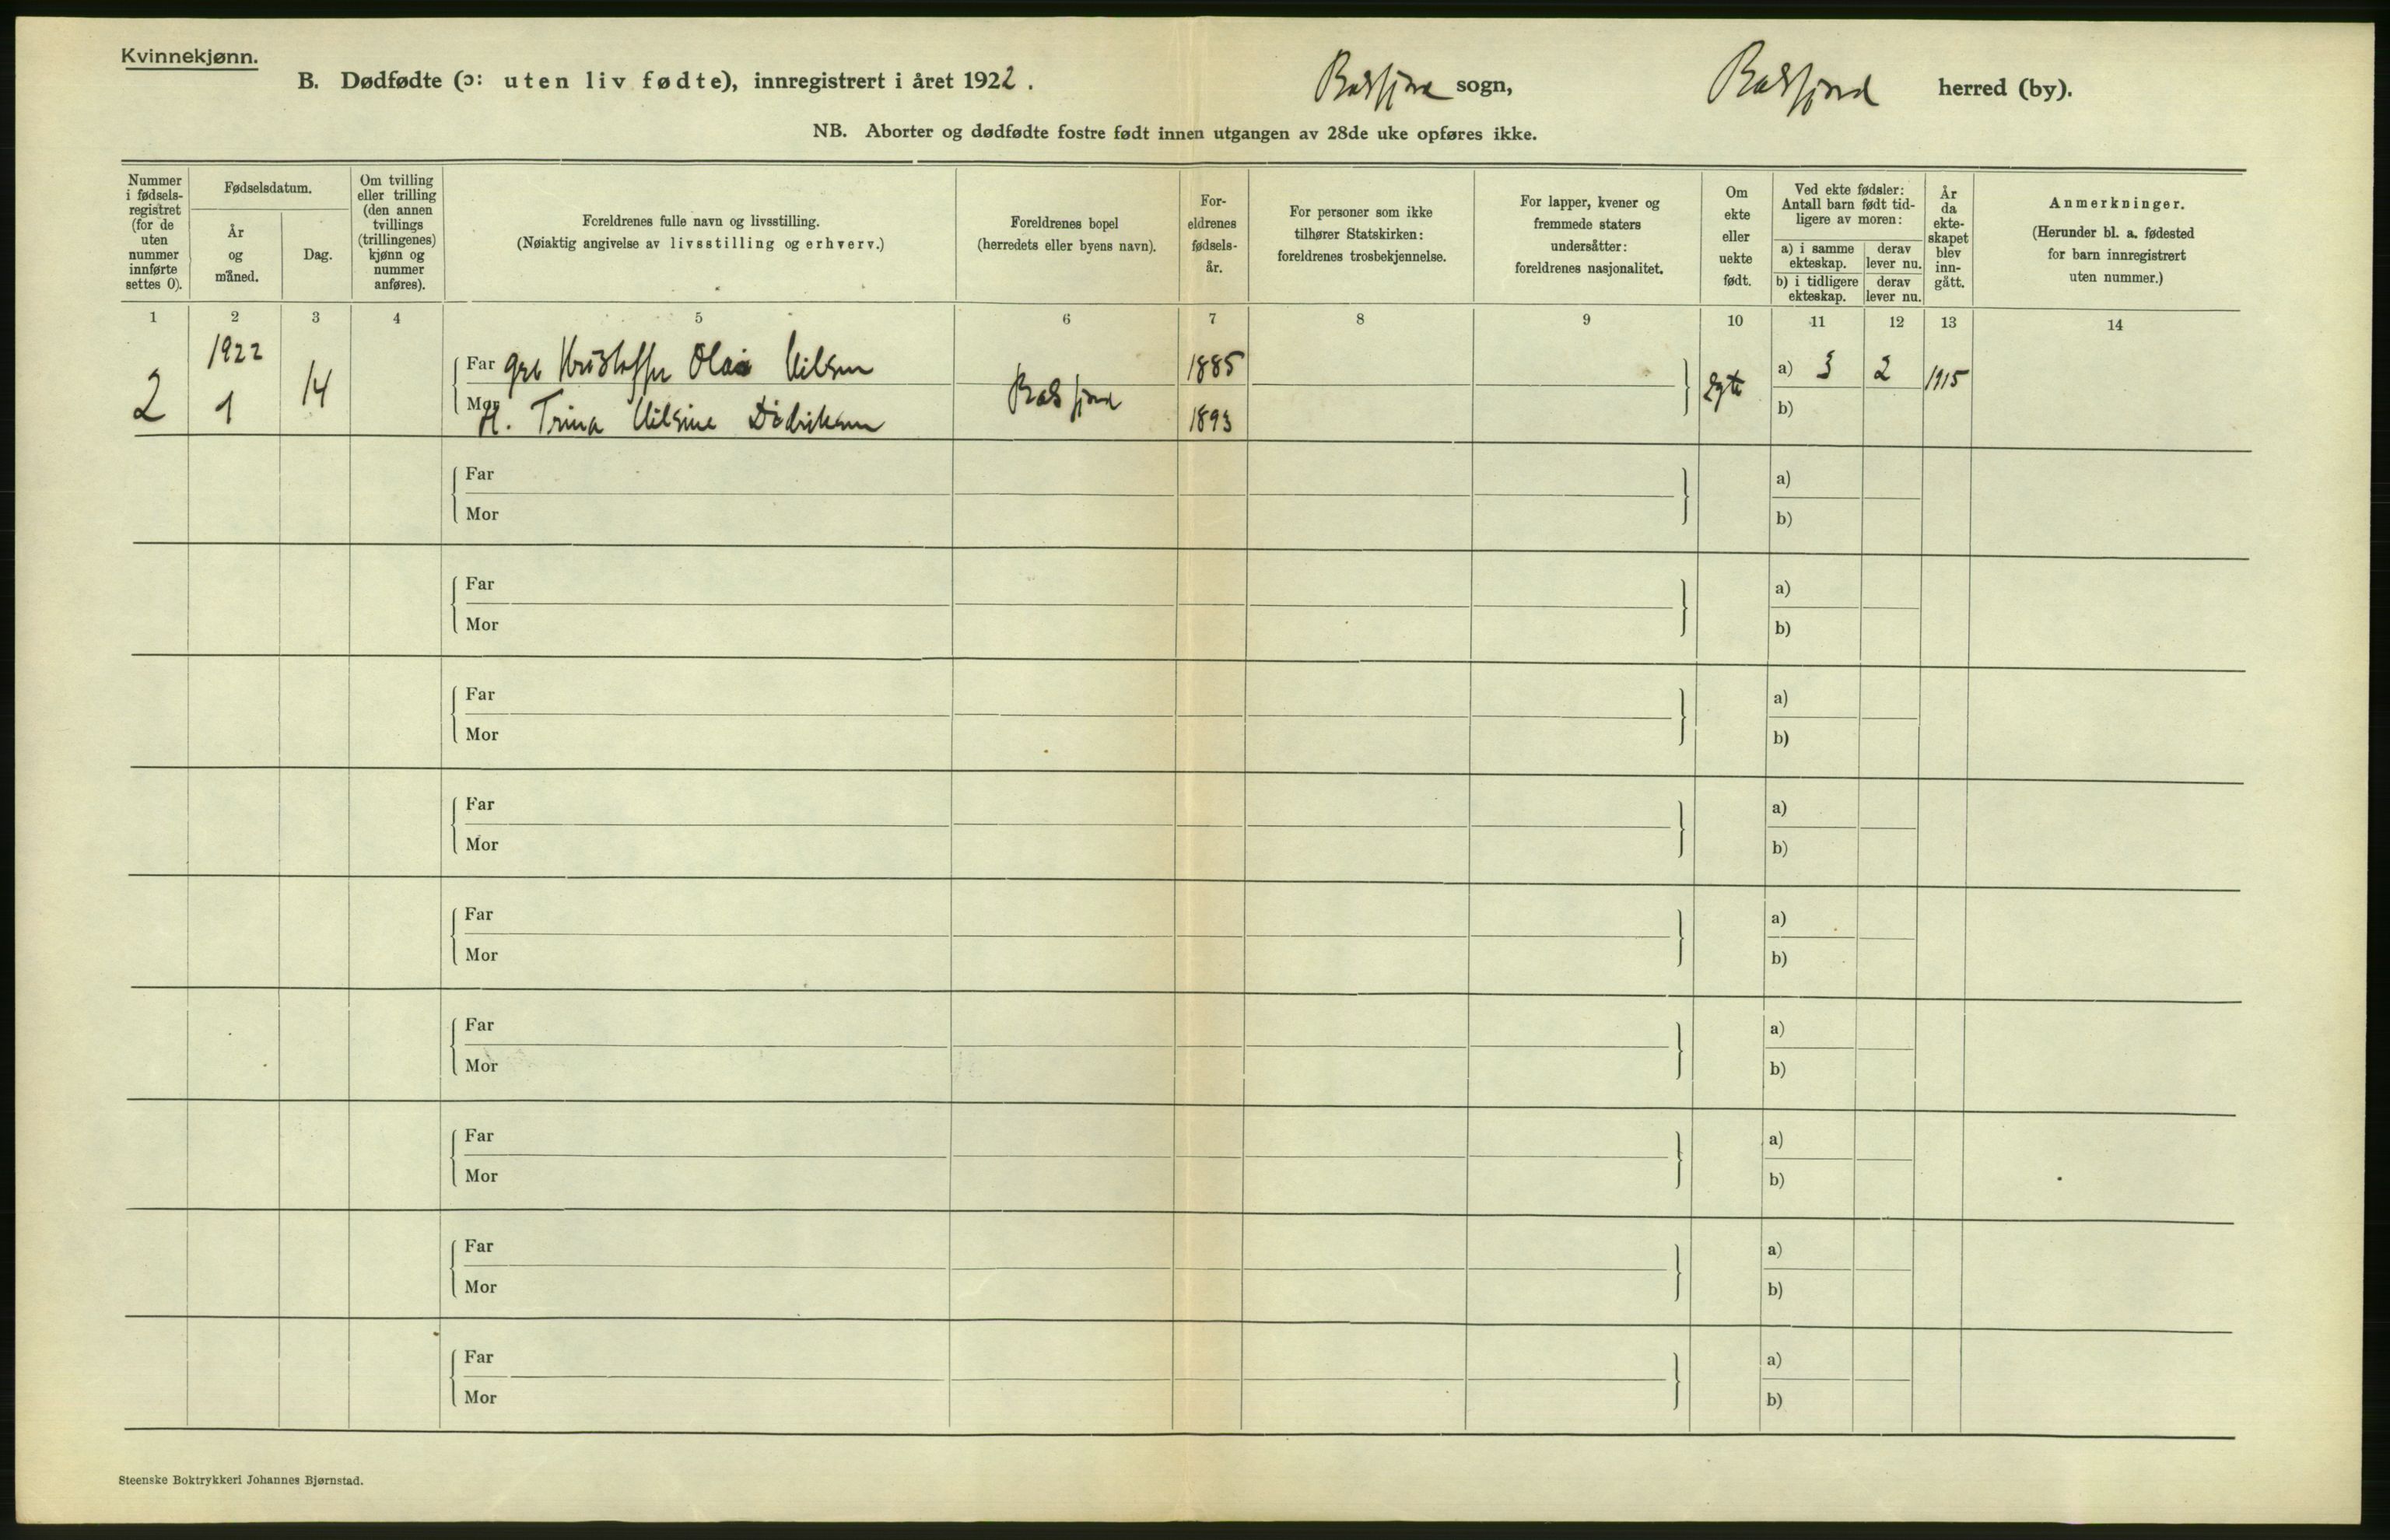 Kvinnekjønn.
B. Dødfødte (ɔ: uten liv fødte), innregistrert i året 1922. Balsfjord sogn, Balsfjord herred (by).
NB. Aborter og dødfødte fostre født innen utgangen av 28de uke opføres ikke.
Nummer i fødsels- registret (for de uten nummer innførte settes 0).
Fødselsdatum.
År og måned.
Dag.
Om tvilling eller trilling (den annen tvillings (trillingenes) kjønn og nummer anføres).
Foreldrenes fulle navn og livsstilling.
(Nøiaktig angivelse av livsstilling og erhverv.)
Foreldrenes bopel
(herredets eller byens navn).
For- eldrenes fødsels- år.
For personer som ikke tilhører Statskirken: foreldrenes trosbekjennelse.
For lapper, kvener og fremmede staters undersåtter: foreldrenes nasjonalitet.
Om ekte eller uekte født.
Ved ekte fødsler: Antall barn født tid- ligere av moren:
a) i samme ekteskap.
derav lever nu.
b) i tidligere ekteskap.
derav lever nu.
År da ekte- skapet blev inn- gått.
Anmerkninger.
(Herunder bl. a. fødested for barn innregistrert uten nummer.)
1 2 3 4 5 6 7 8 9 10 11 12 13 14
1922
Far Kristoffer Olai Nilsen 1885 a) 3 2
2 1 14 Balsfjord Egte 1915
Mor H. Trina Nilsine Didriksen 1893 b)
Far a)
Mor b)
Far a)
Mor b)
Far a)
Mor b)
Far a)
Mor b)
Far a)
Mor b)
Far a)
Mor b)
Far a)
Mor b)
Far a)
Mor b)
Far a)
Mor b)
Steenske Boktrykkeri Johannes Bjørnstad.